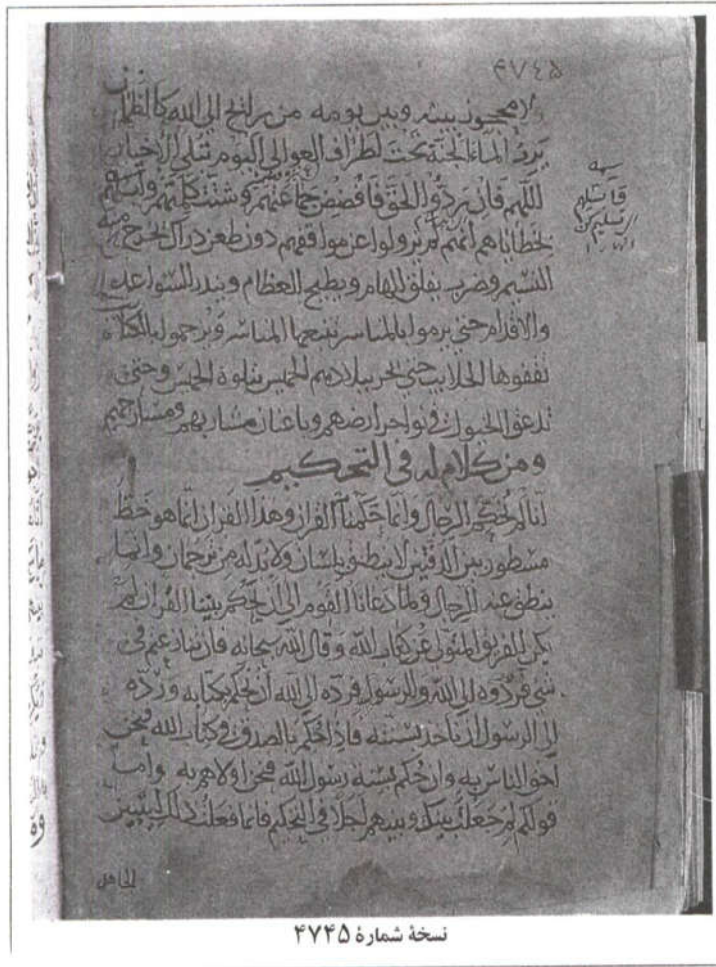 ۴۷٤۵
ولا محجوز بينه وبين يومه من رائح الي الله كالظمآن
يرد الماء الجنة تحت اطراف العوالي اليوم تبلي الاخبار
اللهم فان ردوا الحق فافضض جماعتهم وشتت كلمتهم وابسلهم
بخطاياهم انهم لن يزولوا عن مواقفهم دون طعن دراك يخرج منه
النسيم وضرب يفلق الهام ويطيح العظام ويندر السواعد
والاقدام حتي يرموا بالمناسر تتبعها المناسر ويرجموا بالكتائب
تقفوها الحلايب حتي يجر ببلادهم الخميس يتلوه الخميس وحتي
تدعق الخيول في نواحر ارضهم وباعنان مساربهم ومسارحهم
ومن كلام له في التحكيم
انا لم نحكم الرجال وانما حكمنا القران وهذا القران انما هو خط
مسطور بين الدفتين لا ينطق بلسان ولا بد له من ترجمان وانما
ينطق عنه الرجال ولما دعانا القوم الي ان نحكم بيننا القران لم
نكن الفريق المتولي عن كتاب الله وقال الله سبحانه فان تنازعتم في
شي فردوه الي الله والرسول فرده الي الله ان نحكم بكتابه ورده
الي الرسول ان ناخذ بسنته فاذا حكم بالصدق في كتاب الله فنحن
احق الناس به وان حكم بسنة رسول الله فنحن اولاهم به واما
قولكم لم جعلت بينك وبينهم اجلا في التحكيم فانما فعلت ذلك ليتبين
الجاهل
نسخهٔ شمارهٔ ۴۷۴۵